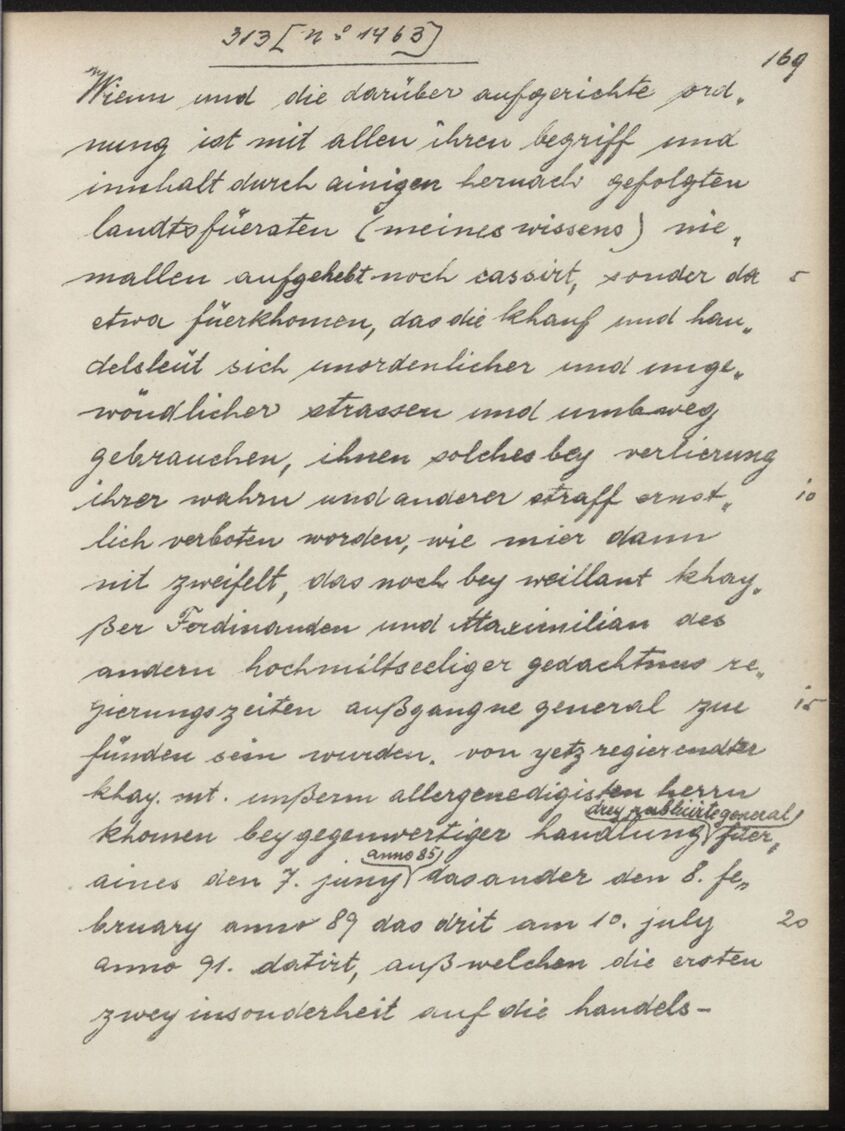 313 [n° 1463]
169
Wienn und die darüber aufgerichte ord„
nung ist mit allen ihren begriff und
innhalt durch ainigen hernach gefolgten
landtsfüersten (meines wissens) nie„
mallen aufgehebt noch cassirt, sonder da 5
etwa füerkhomen, das die khauf und han„
delsleüt sich unordenlicher und unge„
wöndlicher strassen und umbweg
gebrauchen, ihnen solches bey verlierung
ihrer wahrn und anderer straff ernst„ 10
lich verboten worden, wie mier dann
nit zweifelt, das noch bey weillant khay„
ßer Ferdinanden und Maximilian des
andern hochmiltseeliger gedachtnus re„
gierungszeiten außgangne general zue 15
fünden sein wurden. von yetz regierendter
khay. mt. unßerm allergenedigisten herrn
drey publicirte general
khomen bey gegenwertiger handlung füer„
anno 85
aines den 7. juny das ander den 8. fe„
bruary anno 89 das drit am 10. july 20
anno 91. datirt, auß welchen die ersten
zwey insonderheit auf die handels-